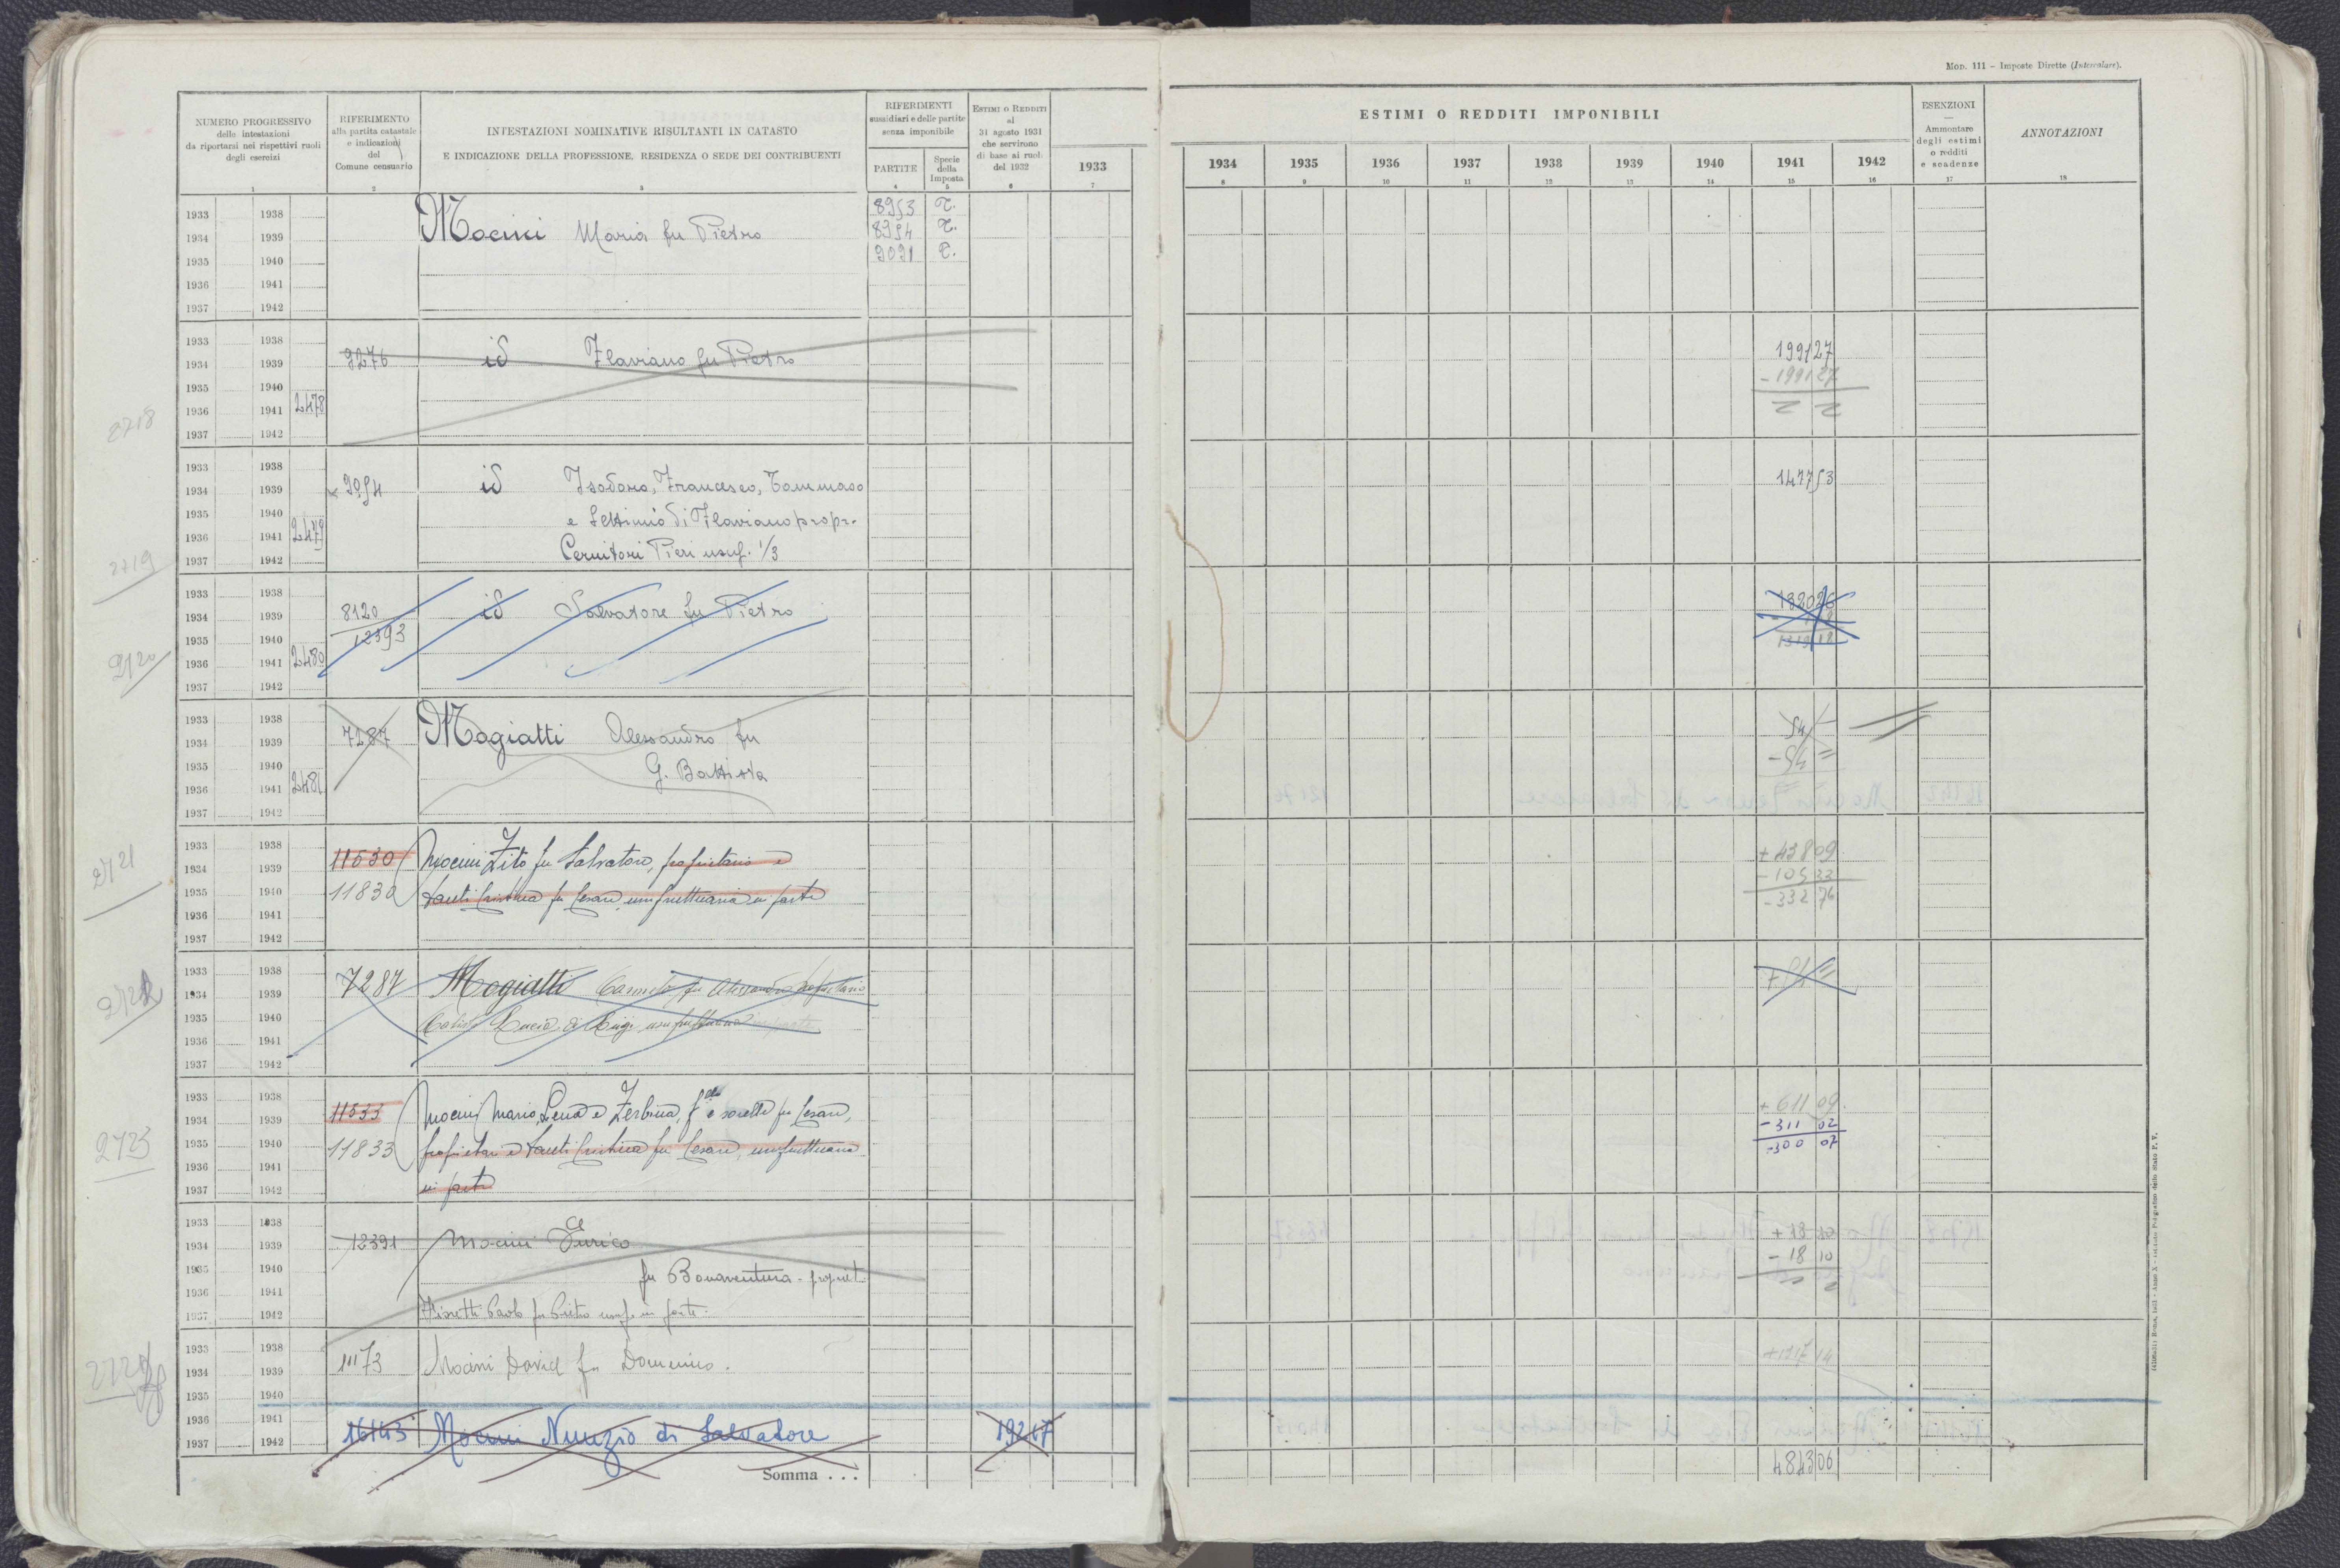 Mod. 111 - Imposte Dirette (Intercalare).
NUMERO PROGRESSIVO
delle intestazioni
da riportarsi nei rispettivi ruoli
degli esercizi
1
RIFERIMENTO
alla partita catastale
e indicazioni
del
Comune censuario
2
INTESTAZIONI NOMINATIVE RISULTANTI IN CATASTO
E INDICAZIONE DELLA PROFESSIONE, RESIDENZA O SEDE DEI CONTRIBUENTI
3
RIFERIMENTI
sussidiari e delle partite
senza imponibile
PARTITE
4
Specie
della
Imposta
5
Estimi o Redditi
al
31 agosto 1931
che servirono
di base ai ruoli
del 1932
6
1933
7
ESTIMI O REDDITI IMPONIBILI
1934 1935 1936 1937 1938 1939 1940 1941 1942
8 9 10 11 12 13 14 15 16
ESENZIONI
Ammontare
degli estimi
o redditi
e scadenze
17
ANNOTAZIONI
18
1933 1938 8953 T.
1934 1939 Mocini Maria fu Pietro 8954 T.
1935 1940 9091 T.
1936 1941
1937 1942
1933 1938
1934 1939 9276 id Flaviano fu Pietro 199127
1935 1940 - 199127
1936 1941 2478
2718
1937 1942
1933 1938
1934 1939 9054 id Isodoro, Francesco, Tommaso 147753
1935 1940 e Settimio di Flaviano propr.
1936 1941 2479
1937 1942 Pieri usuf. 1/3
2719
1933 1938
1934 1939 8120 id Salvatore fu Pietro 132026
1935 1940 12393
1936 1941 2480
1937 1942
1933 1938
1934 1939 7287 Mogiatti Alessandro fu 54
1935 1940 G. Battista - 54 =
1936 1941 2481
1937 1942
1933 1938
1934 1939 11530 Mocini Zito fu Salvatore, proprietario e + 43809
1935 1940 11830 Santi Cristina fu Cesare, usufruttuaria in parte - 10533
1936 1941 - 33276
1937 1942
2721
1933 1938
1934 1939 7287 Mogiatti fu Alessandro proprietario
1935 1940 Lucia di Luigi usufruttuaria in parte
1936 1941
1937 1942
1933 1938
1934 1939 11533 Mocini Mario, Lena e Zerbina, f.llo e sorelle fu Cesare, + 611 09
1935 1940 11833 proprietari e Santi Cristina fu Cesare, usufruttuaria - 311 02
1936 1941 300 07
1937 1942 in parte
2723
1933 1938
1934 1939 12391 Mocini Enrico + 18 10
1935 1940 fu Bonaventura - propriet. - 18 10
1936 1941
1937 1942 Paolo fu Pietro usuf. in parte
1933 1938
1934 1939 11173 Mocini David fu Domenico.
1935 1940
1936 1941
1937 1942 16143 Mocini Nunzio di Salvatore 19217
Somma . . . 484306